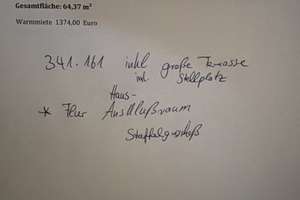 Gesamtfläche: 64,37 m²
Warmmiete 1374,00 Euro
341.161 inkl große Terrasse
ink Stellplatz
Haus-
* Flur Anschlußraum
Staffelgeschoß